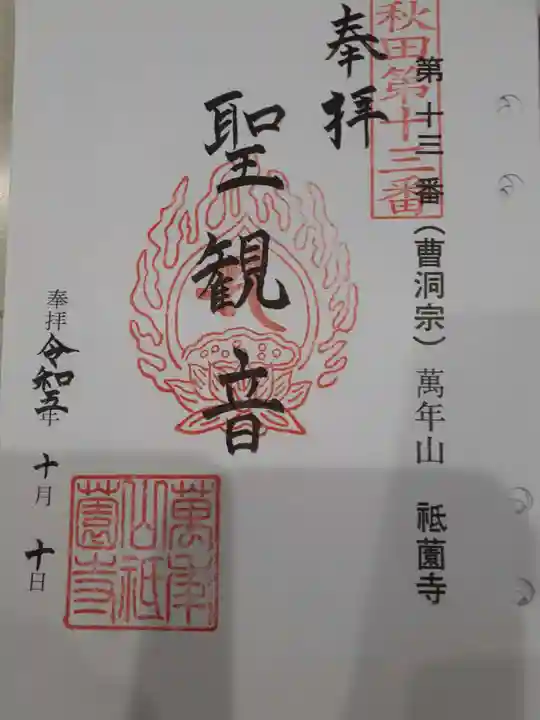 秋田第十三番
第十三番(曹洞宗)萬年山 祗薗寺
奉拝
聖観音
奉拝 令和五年 十月 十日
萬年
山祗
薗寺